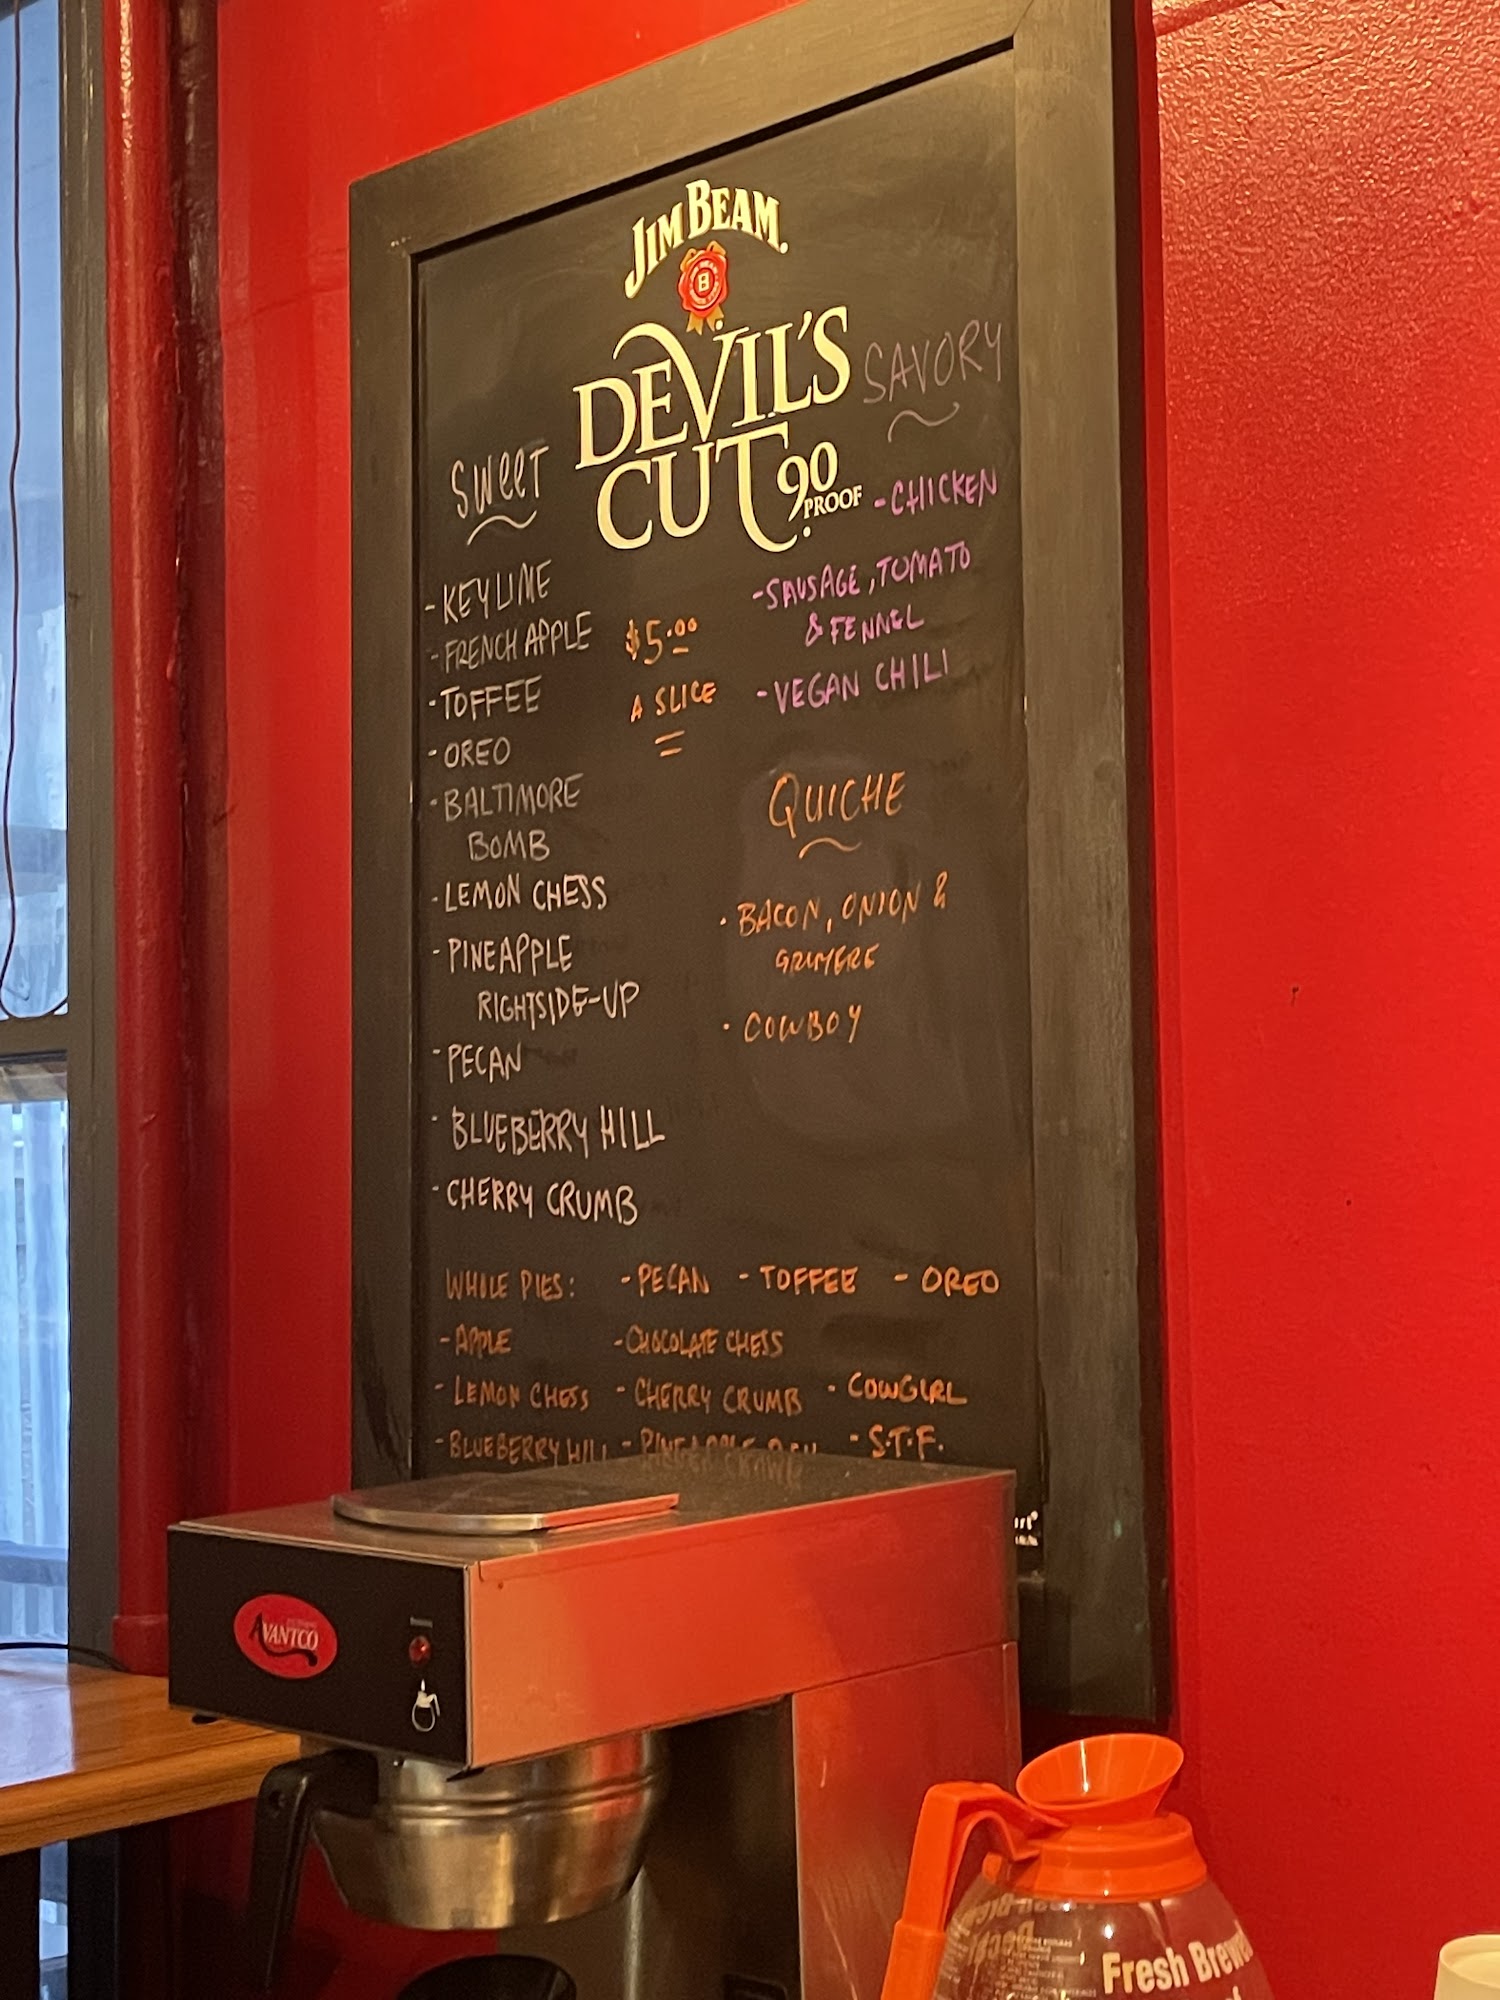 JIM BEAM
DEVIL'S
CUT 90
PROOF
SWEET
- KEYLIME
- FRENCH APPLE
- TOFFEE
- OREO
- BALTIMORE
BOMB
- LEMON CHESS
- PINEAPPLE
RIGHTSIDE-UP
- PECAN
- BLUEBERRY HILL
- CHERRY CRUMB
$5.00
A SLICE
SAVORY
- CHICKEN
- SAUSAGE, TOMATO
& FENNEL
- VEGAN CHILI
QUICHE
· BACON, ONION &
GRUYERE
· COWBOY
WHOLE PIES: - PECAN - TOFFEE - OREO
- APPLE - CHOCOLATE CHESS
- LEMON CHESS - CHERRY CRUMB - COWGIRL
- BLUEBERRY HILL - PINEAPPLE - S.T.F.
AVANTCO
Fresh Brewed